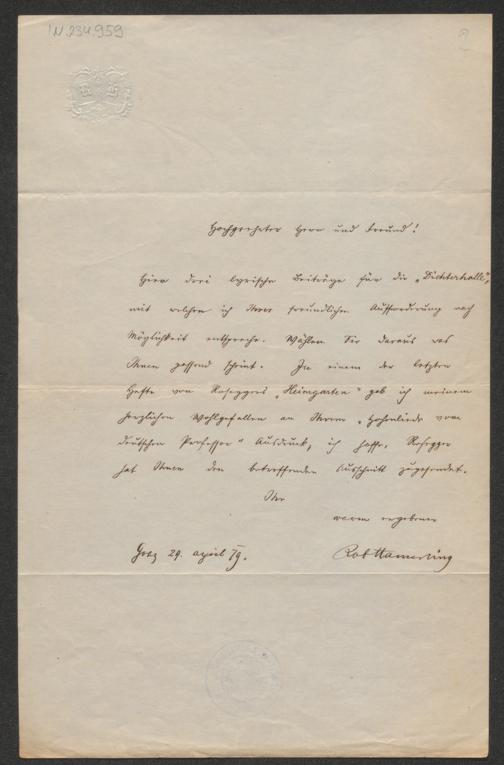 IN.234.959
2
Hochgeehrter Herr und Freund!
Hier drei lyrische Beiträge für die „Dichterhalle",
mit welchen ich Ihrer freundlichen Aufforderung nach
Möglichkeit entspreche. Wählen Sie daraus was
Ihnen passend scheint. In einem der letzten
Hefte von Roseggers „Heimgarten" gab ich meinem
herzlichen Wohlgefallen an Ihrem „Hohenliede vom
deutschen Professor" Ausdruck, ich hoffe, Rosegger
hat Ihnen den betreffenden Ausschnitt zugesendet.
Ihr
warm ergebener
Graz 29. April 79.
Rob Hamerling